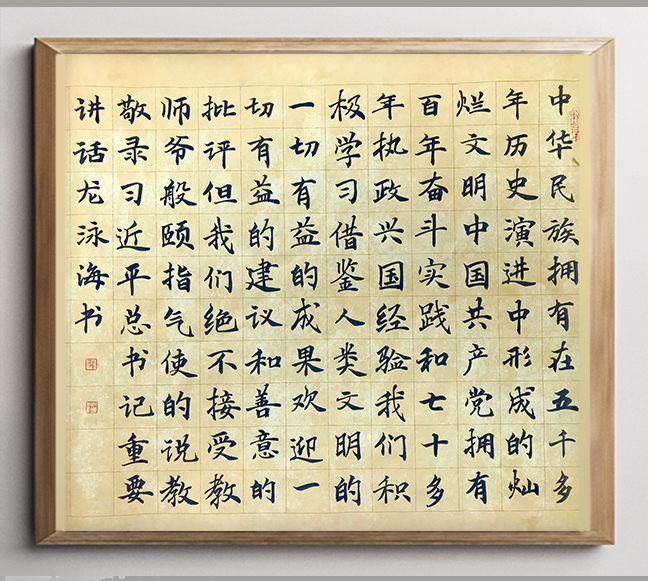 中华民族拥有在五千多
年历史演进中形成的灿
烂文明中国共产党拥有
百年奋斗实践和七十多
年执政兴国经验我们积
极学习借鉴人类文明的
一切有益的成果欢迎一
切有益的建议和善意的
批评但我们绝不接受教
师爷般颐指气使的说教
敬录习近平总书记重要
讲话龙泳海书